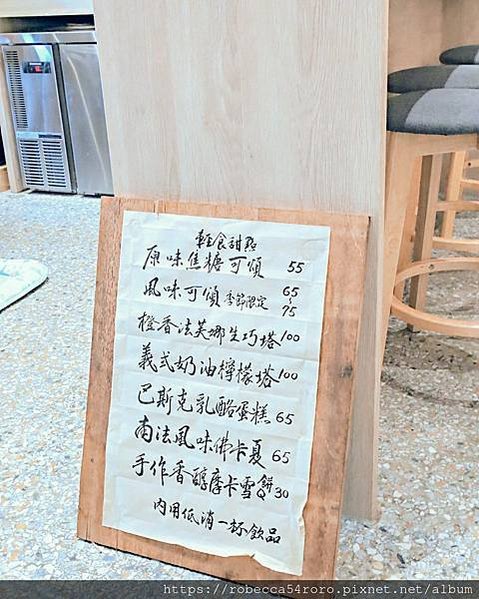 輕食甜點
原味焦糖可頌 55
風味可頌 季節限定 65~75
橙香法芙娜生巧塔 100
義式奶油檸檬塔 100
巴斯克乳酪蛋糕 65
南法風味佛卡夏 65
手作香醇摩卡雪Q餅 30
內用低消一杯飲品
https://robecca54roro.pixnet.net/album